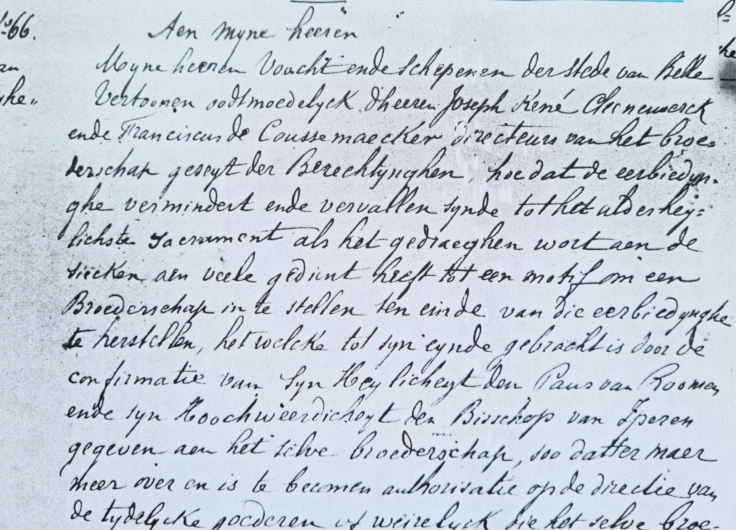 №66.
Aen myne heeren
Myne heeren Voocht ende Schepenen der stede van Belle
Vertoonen oodtmoedelyck d'heeren Joseph René
ende Franciscus de Coussemaecker directeurs van het broe-
derschap geseyt der Berechtynghen hoe dat de eerbiedyn-
ghe vermindert ende vervallen synde tot het alderhey-
lichste Sacrament als het gedraeghen wort aen de
siecken aen veele gedient heeft tot een motif om een
Broederschap in te stellen ten einde van die eerbiedynghe
te herstellen, het welcke tot syn eynde gebracht is door de
confirmatie van Syn Heylicheyt den Paus van Roomen
ende syn Hoochweerdicheyt den Bisschop van Iperen
gegeven aen het selve broederschap, soo datter maer
meer over en is te becomen authorisatie op de directie van
de tydelycke goederen of weirelyck die het selve broe-